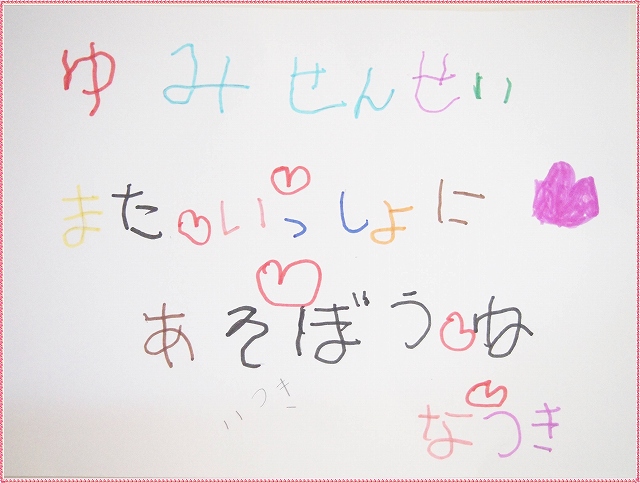 ゆみせんせい
またいっしょに
あそぼうね
いつき
なつき